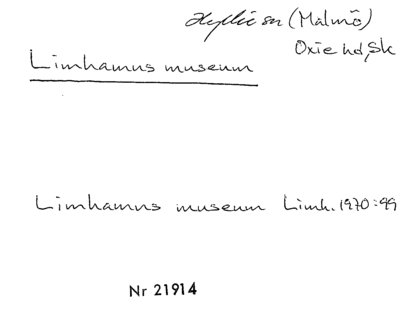 Hyllie sn (Malmö)
Oxie hd, Sk
Limhamns museum
Limhamns museum Limh. 1970:99
Nr 21914